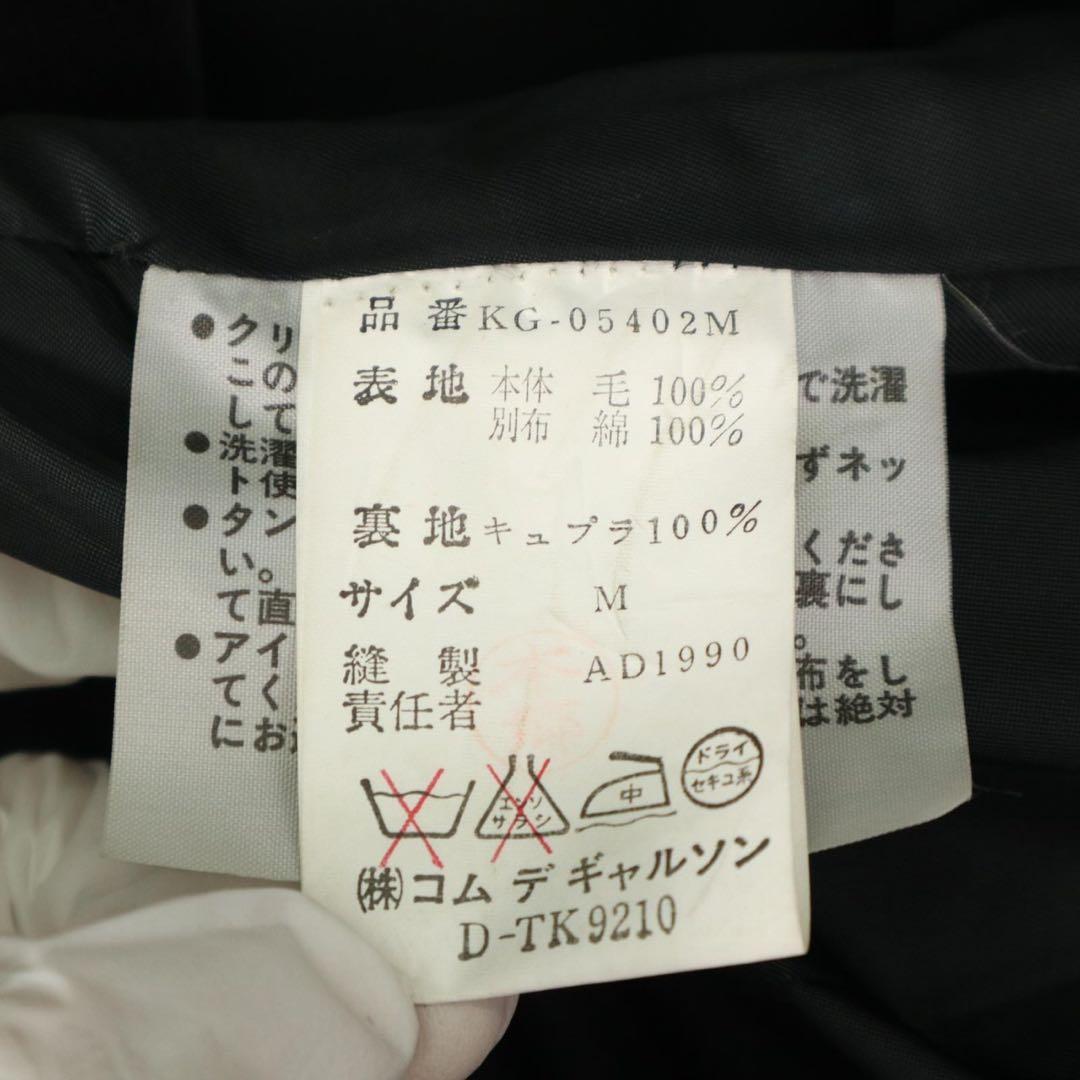 品番 KG-05402M
表地 本体 毛 100%
別布 綿 100%
裏地 キュプラ100%
サイズ M
縫製 AD1990
責任者
エンソ
サラシ
中
ドライ
セキユ系
㈱コム デ ギャルソン
D-TK9210
●クリ
このて
し
●洗濯
ト使
●タン
い。
て直
●アイ
てく
にお
で洗濯
ずネッ
くださ
裏にし
。
布をし
は絶対